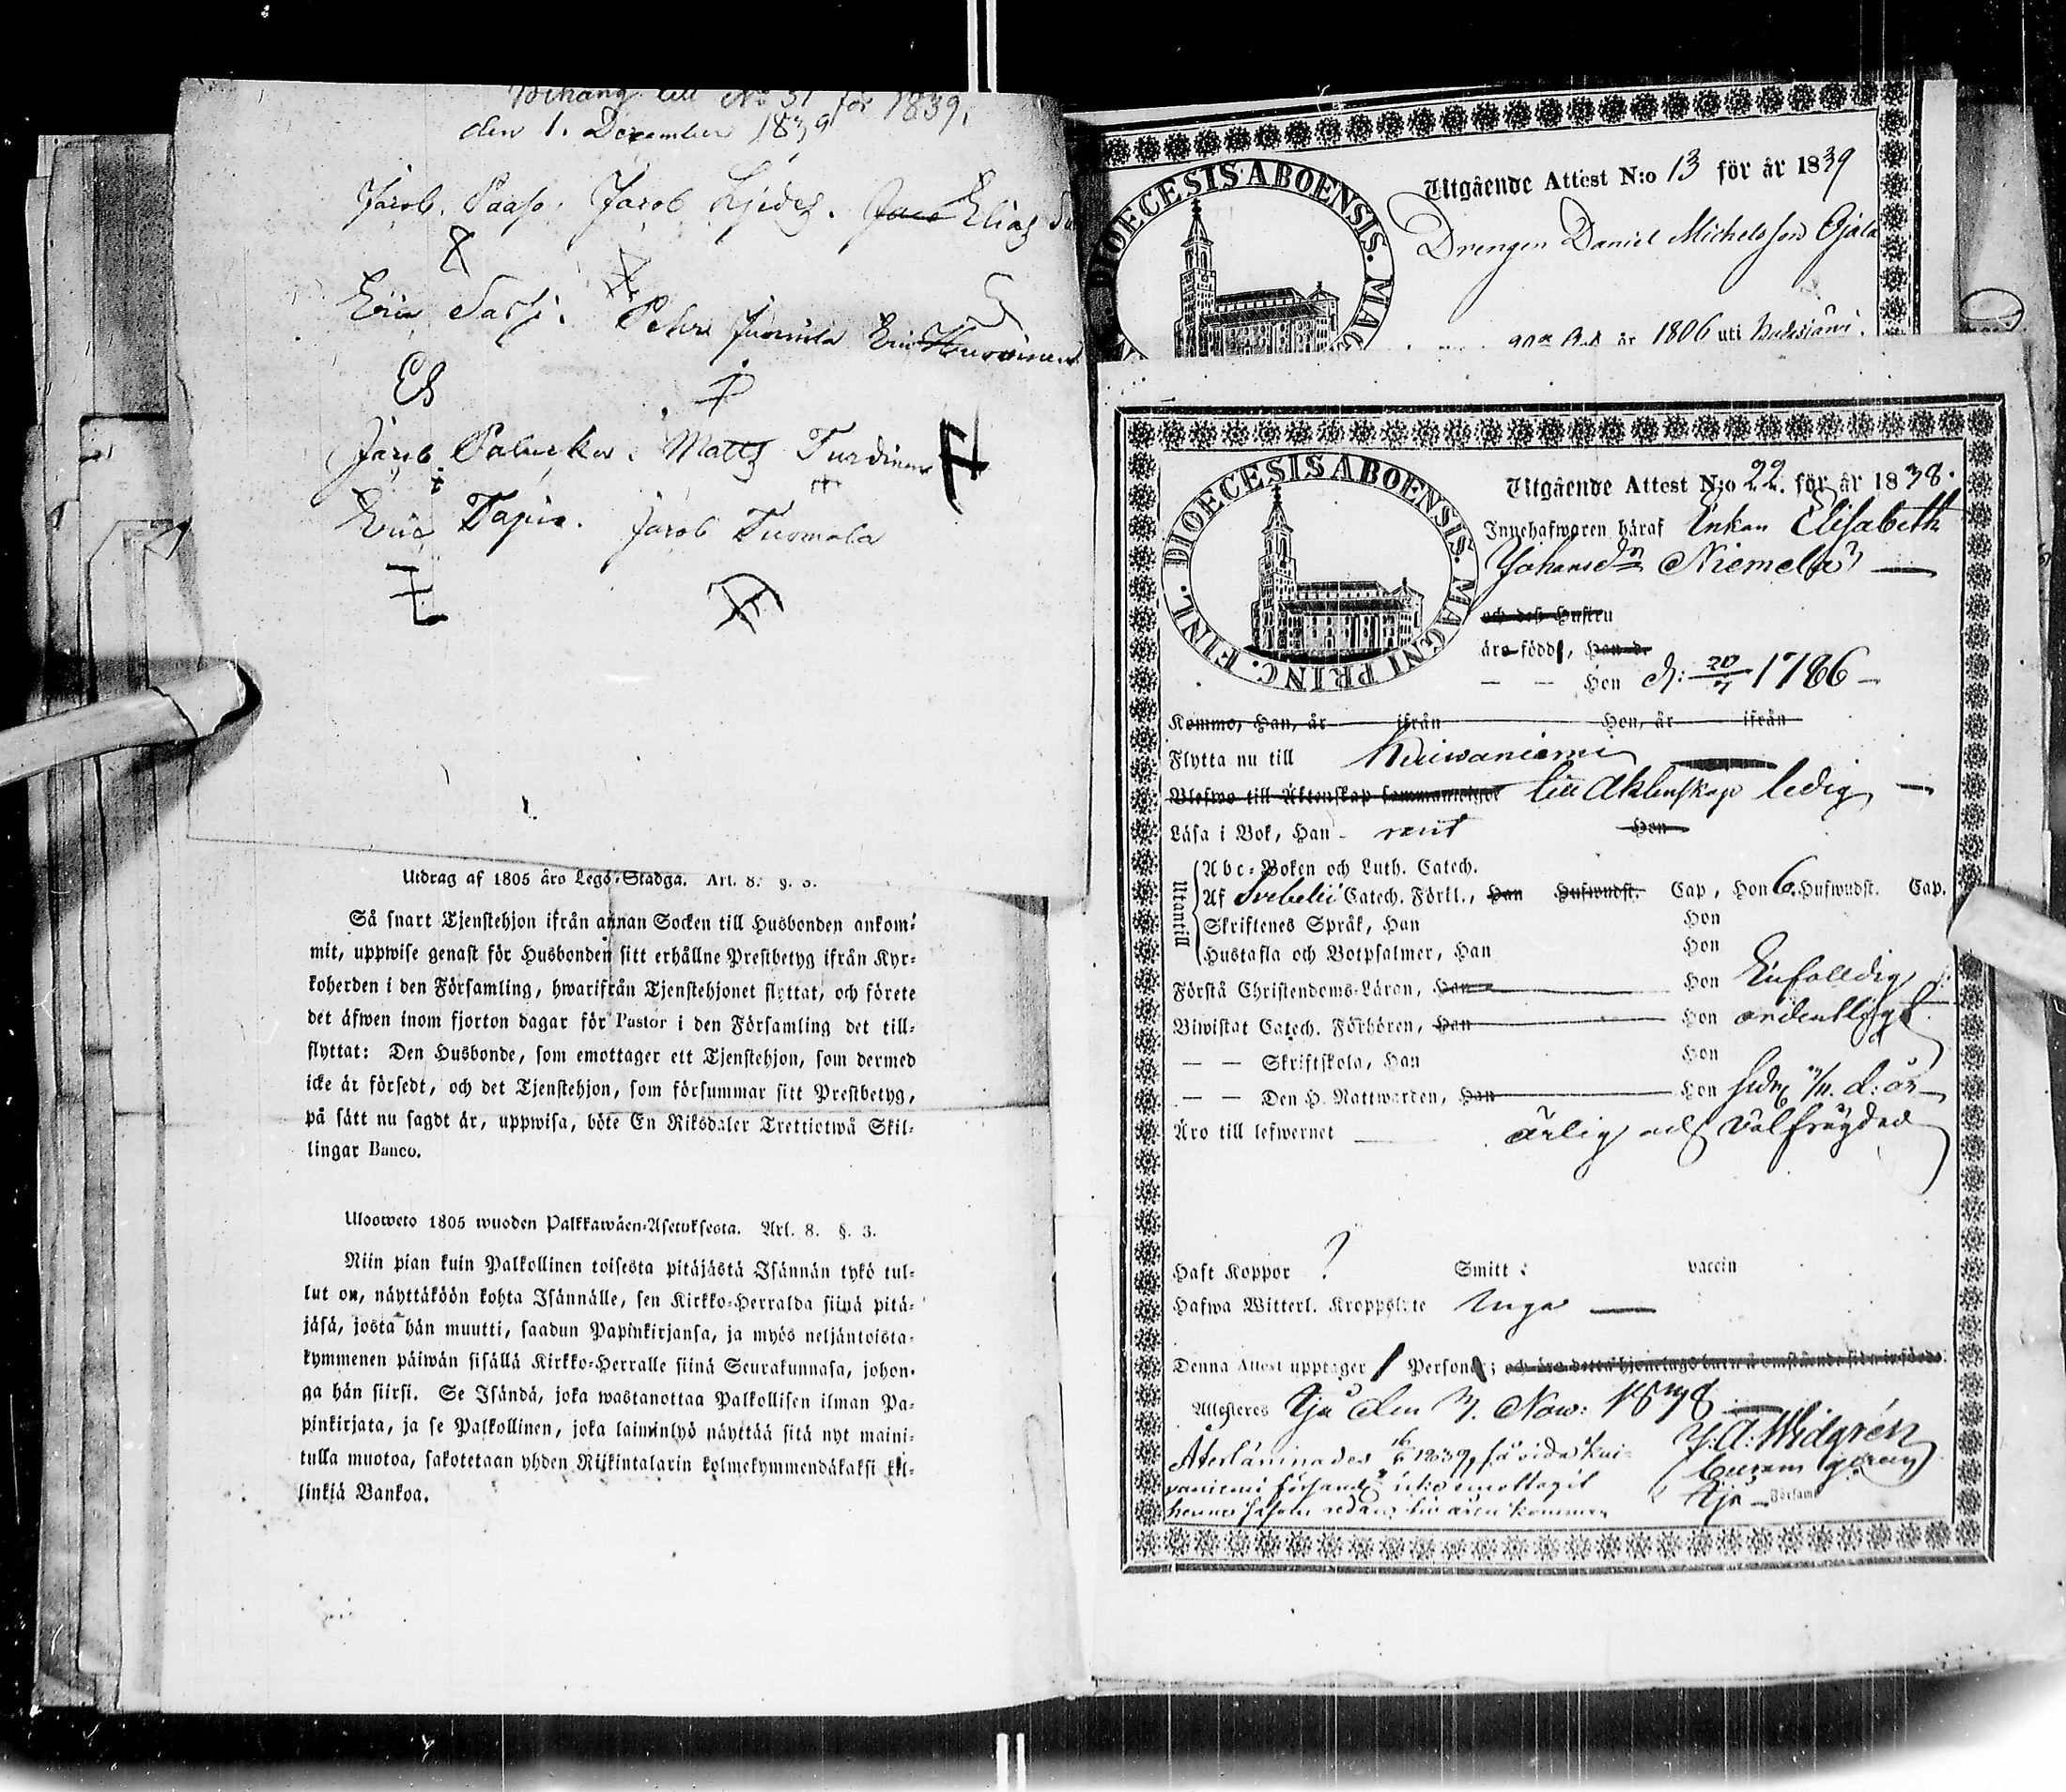 Bihang till No 31 för 1839.
den 1. December 1839
Jacob Paaso. Jacob Eliaz
Eric Pehr Juvula Eric
Jacob Matts Turdinen
Eric Tapio. Jacob Tuomala
Utdrag af 1805 års Lego-Stadga. Art. 8. §. 3.
Så snart Tjenstehjon ifrån annan Socken till Husbonden ankom-
mit, uppwise genast för Husbonden sitt erhållne Prestbetyg ifrån Kyr-
koherden i den Församling, hwarifrån Tjenstehjonet flyttat, och förete
det äfwen inom fjorton dagar för Pastor i den Församling det till-
flyttat: Den Husbonde, som emottager ett Tjenstehjon, som dermed
icke är försedt, och det Tjenstehjon, som försummar sitt Prestbetyg,
på sätt nu sagdt är, uppwisa, böte En Riksdaler Trettiotwå Skil-
lingar Banco.
Uloosweto 1805 wuoden Palkkawäen-Asetuksesta. Art. 8. §. 3.
Niin pian kuin Palkollinen toisesta pitäjästä Isännän tykö tul-
lut on, näyttäköön kohta Isännälle, sen Kirkko-Herralda siinä pitä-
jäsä, josta hän muutti, saadun Papinkirjansa, ja myös neljäntoista-
kymmenen päiwän sisällä Kirkko-Herralle siinä Seurakunnasa, johon-
ga hän siirsi. Se Isändä, joka wastanottaa Palkollisen ilman Pa-
pinkirjata, ja se Palkollinen, joka laiminlyö näyttää sitä nyt maini-
tulla muotoa, sakotetaan yhden Riikintalarin kolmekymmendäkaksi kil-
linkiä Bankoa.
DIOECESIS ABOENSIS. MAG
Utgående Attest N:o 13 för år 1839
Drengen Daniel Michelsson Ojala
år 1806 uti
DIOECESIS ABOENSIS. MAGNI PRINC. FINL.
Utgående Attest N:o 22. för år 1838.
Innehafwaren häraf Enkan Elisabeth
Johansdr Niemelä
och dess Hustru
äro född, Han d.
— — Hon d: 20/7 1786 —
Kommo, Han, år ifrån Hon, år ifrån
Flytta nu till Kuiwaniemi
Blefwo till Äktenskap sammanwigde till Äktenskap ledig —
Läsa i Bok, Han - rent Hon
Utantill
Abc-Boken och Luth. Catech.
Af Svebelii Catech. Förkl., Han Hufwudst. Cap, Hon 6. Hufwudst. Cap.
Skriftenes Språk, Han Hon
Hustafla och Botpsalmer, Han Hon
Förstå Christendoms-Läran, Han Hon Enfalldig
Biwistat Catech. Förhören, Han Hon ordentligt
— — Skriftskola, Han Hon
— — Den H. Nattwarden, Han Hon d: år
Äro till lefwernet ärlig och välfrägdad
Haft Koppor ? Smitt : vaccin
Hafwa Witterl. Kroppslyte Inga —
Denna Attest upptager 1 Person;
Attesteras Ijo den Nov: 1838
Återlämnades 1839, så vida Kui- J. A: Widgrén
vaniemi församl: icke emottagit curam gerens
henne såsom redan kommen Ijo Församl